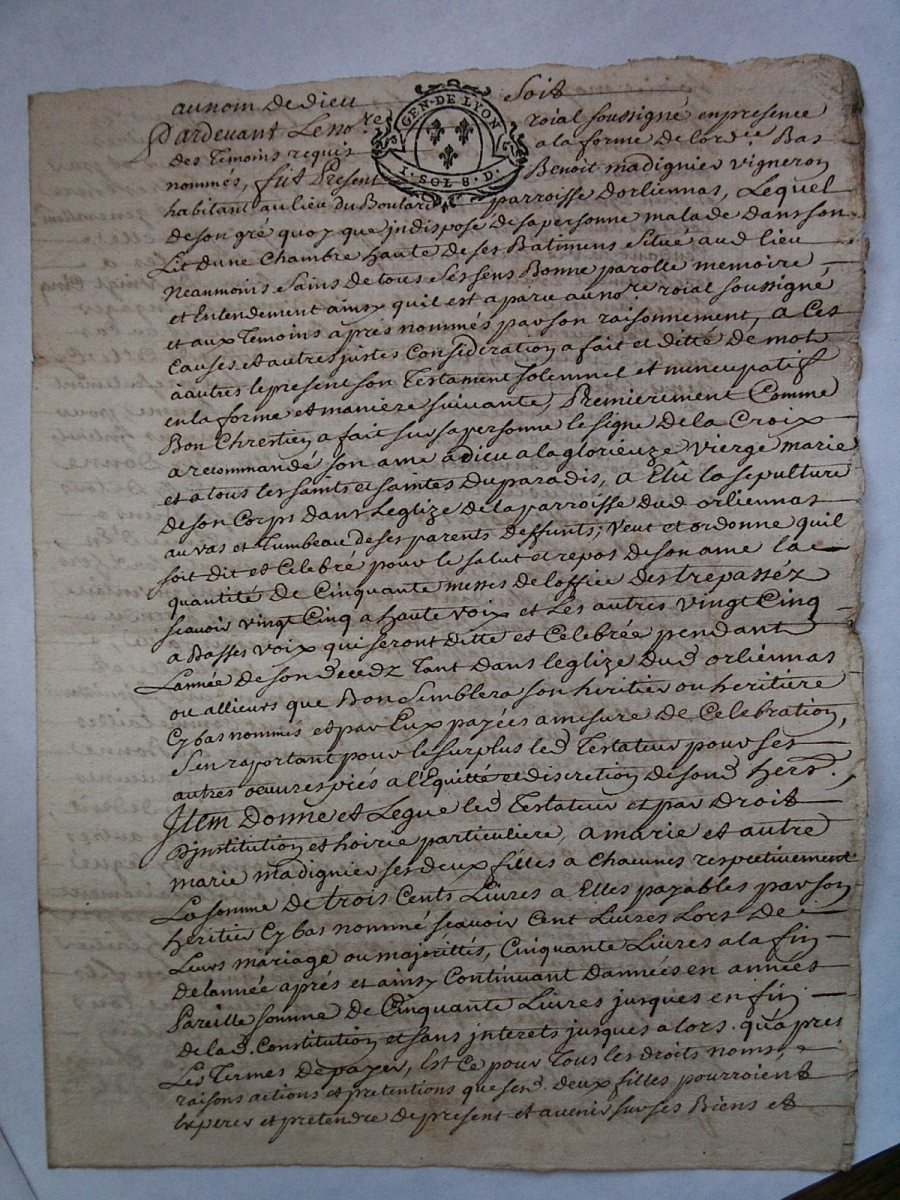 au nom de dieu soit
Pardevant Le no.re roial soussigné en presence
des Temoins requis a la forme de lord.ce Bas
nommés, fut Present Benoit madignier vigneron
habitant au lieu du Boulard parroisse dorliennas, Lequel
GEN. DE LYON
1. SOL 8. D.
de son gré quoy que jndisposé de sa personne malade dans son
Lit dune chambre haute de ses Batimens situé aud lieu
Neanmoins sains de tous ses sens Bonne parolle memoire
et Entendement ainsy quil est aparu au no.re roial soussigné
et aux Temoins aprés nommés par son raisonnement, a Ces
Causes et autres justes Consideration a fait et ditté de mot
à autres le present son Testament solemnel et nuncupatif
en la forme et maniere suivante, Premierement Comme
Bon Chrestien a fait sur sa personne le signe de la Croix
a recommandé son ame à dieu a la glorieuze vierge marie
et a tous les saints et saintes du paradis, a Elû la sepulture
de son Corps dans Leglize de la parroisse dud orliennas
au vas et Tumbeau de ses parents deffunts; veut et ordonne quil
soit dit et Celebré pour le salut et repos de son ame la
quantité de Cinquante messes de loffice des trepassez
scavoir vingt Cinq a haute voix et Les autres vingt Cinq
a Basses voix qui seront ditte et Celebrée pendant
Lannée de son decedz Tant dans leglize dud orliénnas
ou allieurs que Bon semblera son heritier ou heritiere
Cy bas nommés et par Eux payées a mesure de Celebration,
sen raportant pour le surplus led Testateur pour ses
autres oeuvres piés a l'Equitté et discretion de sond her.
Jtem Donne et Legue led Testateur et par Droit
Djnstitution et hoirie particuliere, a marie et autre
marie madignier ses deux filles a Chacunes respectivement
La somme de trois Cents Livres a Elles payables par son
heritier Cy bas nommé scavoir Cent Livres Lors de
Leurs mariage ou majorittés, Cinquante Livres a la fin
de lannée aprés et ainsy Continuant dannées en années
Pareille somme de Cinquante Livres jusques en fin
de lad. Constitution et sans jnterets jusques alors qu'apres
Les Termes de payer, Est Ce pour Tous les droits noms,
raisons actions et pretentions que sesd deux filles pourroient
Esperer et pretendre de present et avenir sur ses Biens et